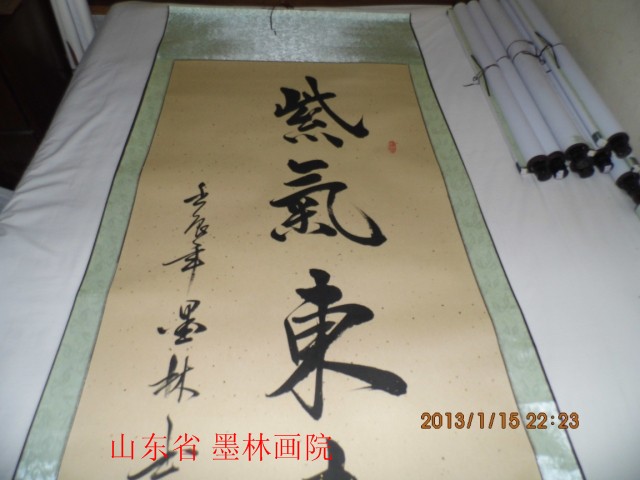 紫氣東
壬辰年墨林
山东省 墨林画院
2013/1/15 22:23